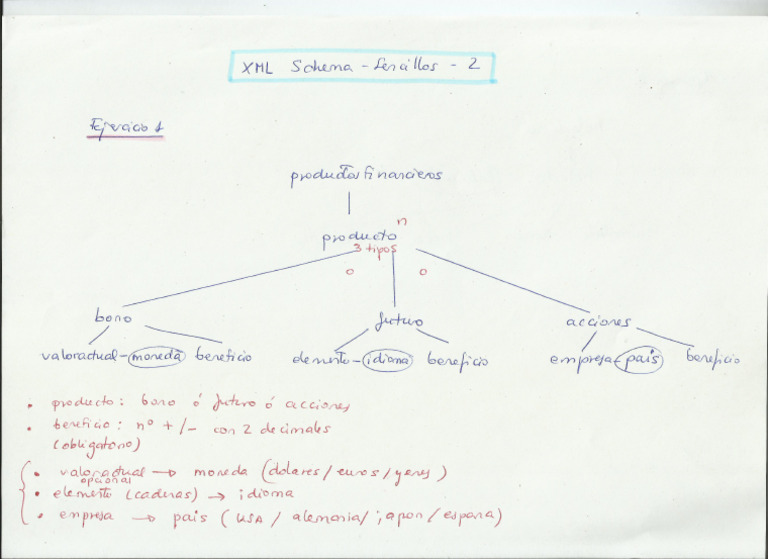 XML Schema - Sencillos - 2
Ejercicio 1
productosfinancieros
n
producto
3 tipos
o o
bono futuro acciones
valoractual - moneda beneficio elemento - idioma beneficio empresa - pais beneficio
• producto: bono ó futuro ó acciones
• beneficio: nº +/- con 2 decimales
(obligatorio)
• valoractual → moneda (dolares/euros/yenes)
opcional
• elemento (cadenas) → idioma
• empresa → pais (USA / alemania / japon / espana)